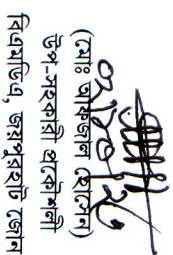 (মোঃ আফজাল হোসেন)
উপ-সহকারী প্রকৌশলী
বিএমডিএ, জয়পুরহাট জোন